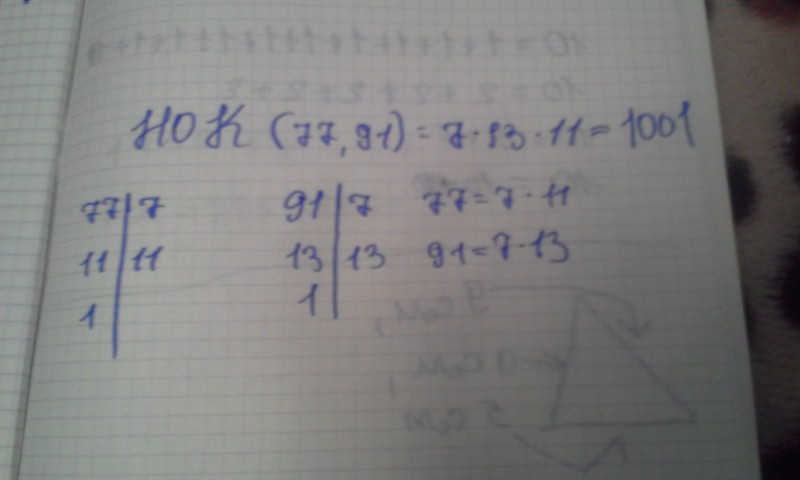 НОК (77, 91) = 7·13·11 = 1001
77 | 7
11 | 11
1
91 | 7
13 | 13
1
77 = 7·11
91 = 7·13